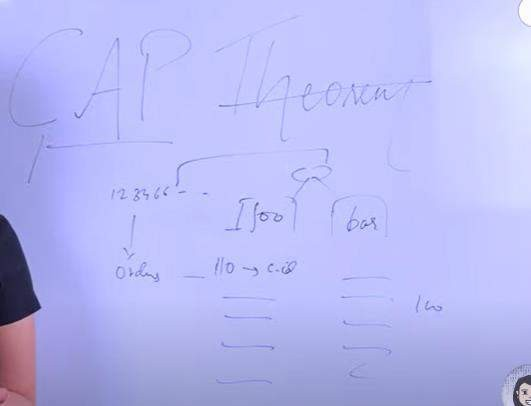 CAP Theorem
123466 - -
foo bar
Orders - 110 → c.id
100